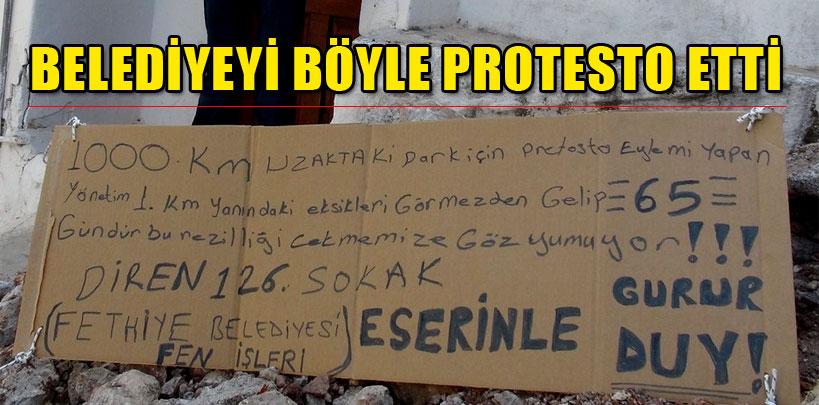 BELEDİYEYİ BÖYLE PROTESTO ETTİ
1000.Km UZAKTAKi Park için Pretosto Eylemi Yapan
Yönetim 1. Km Yanındaki eksikleri Görmezden Gelip =65=
Gündür bu rezilliği Cekmemize Göz yumuyor!!!
DİREN 126. SOKAK
(FETHİYE BELEDİYESİ
FEN İŞLERİ)
ESERİNLE
GURUR
DUY!